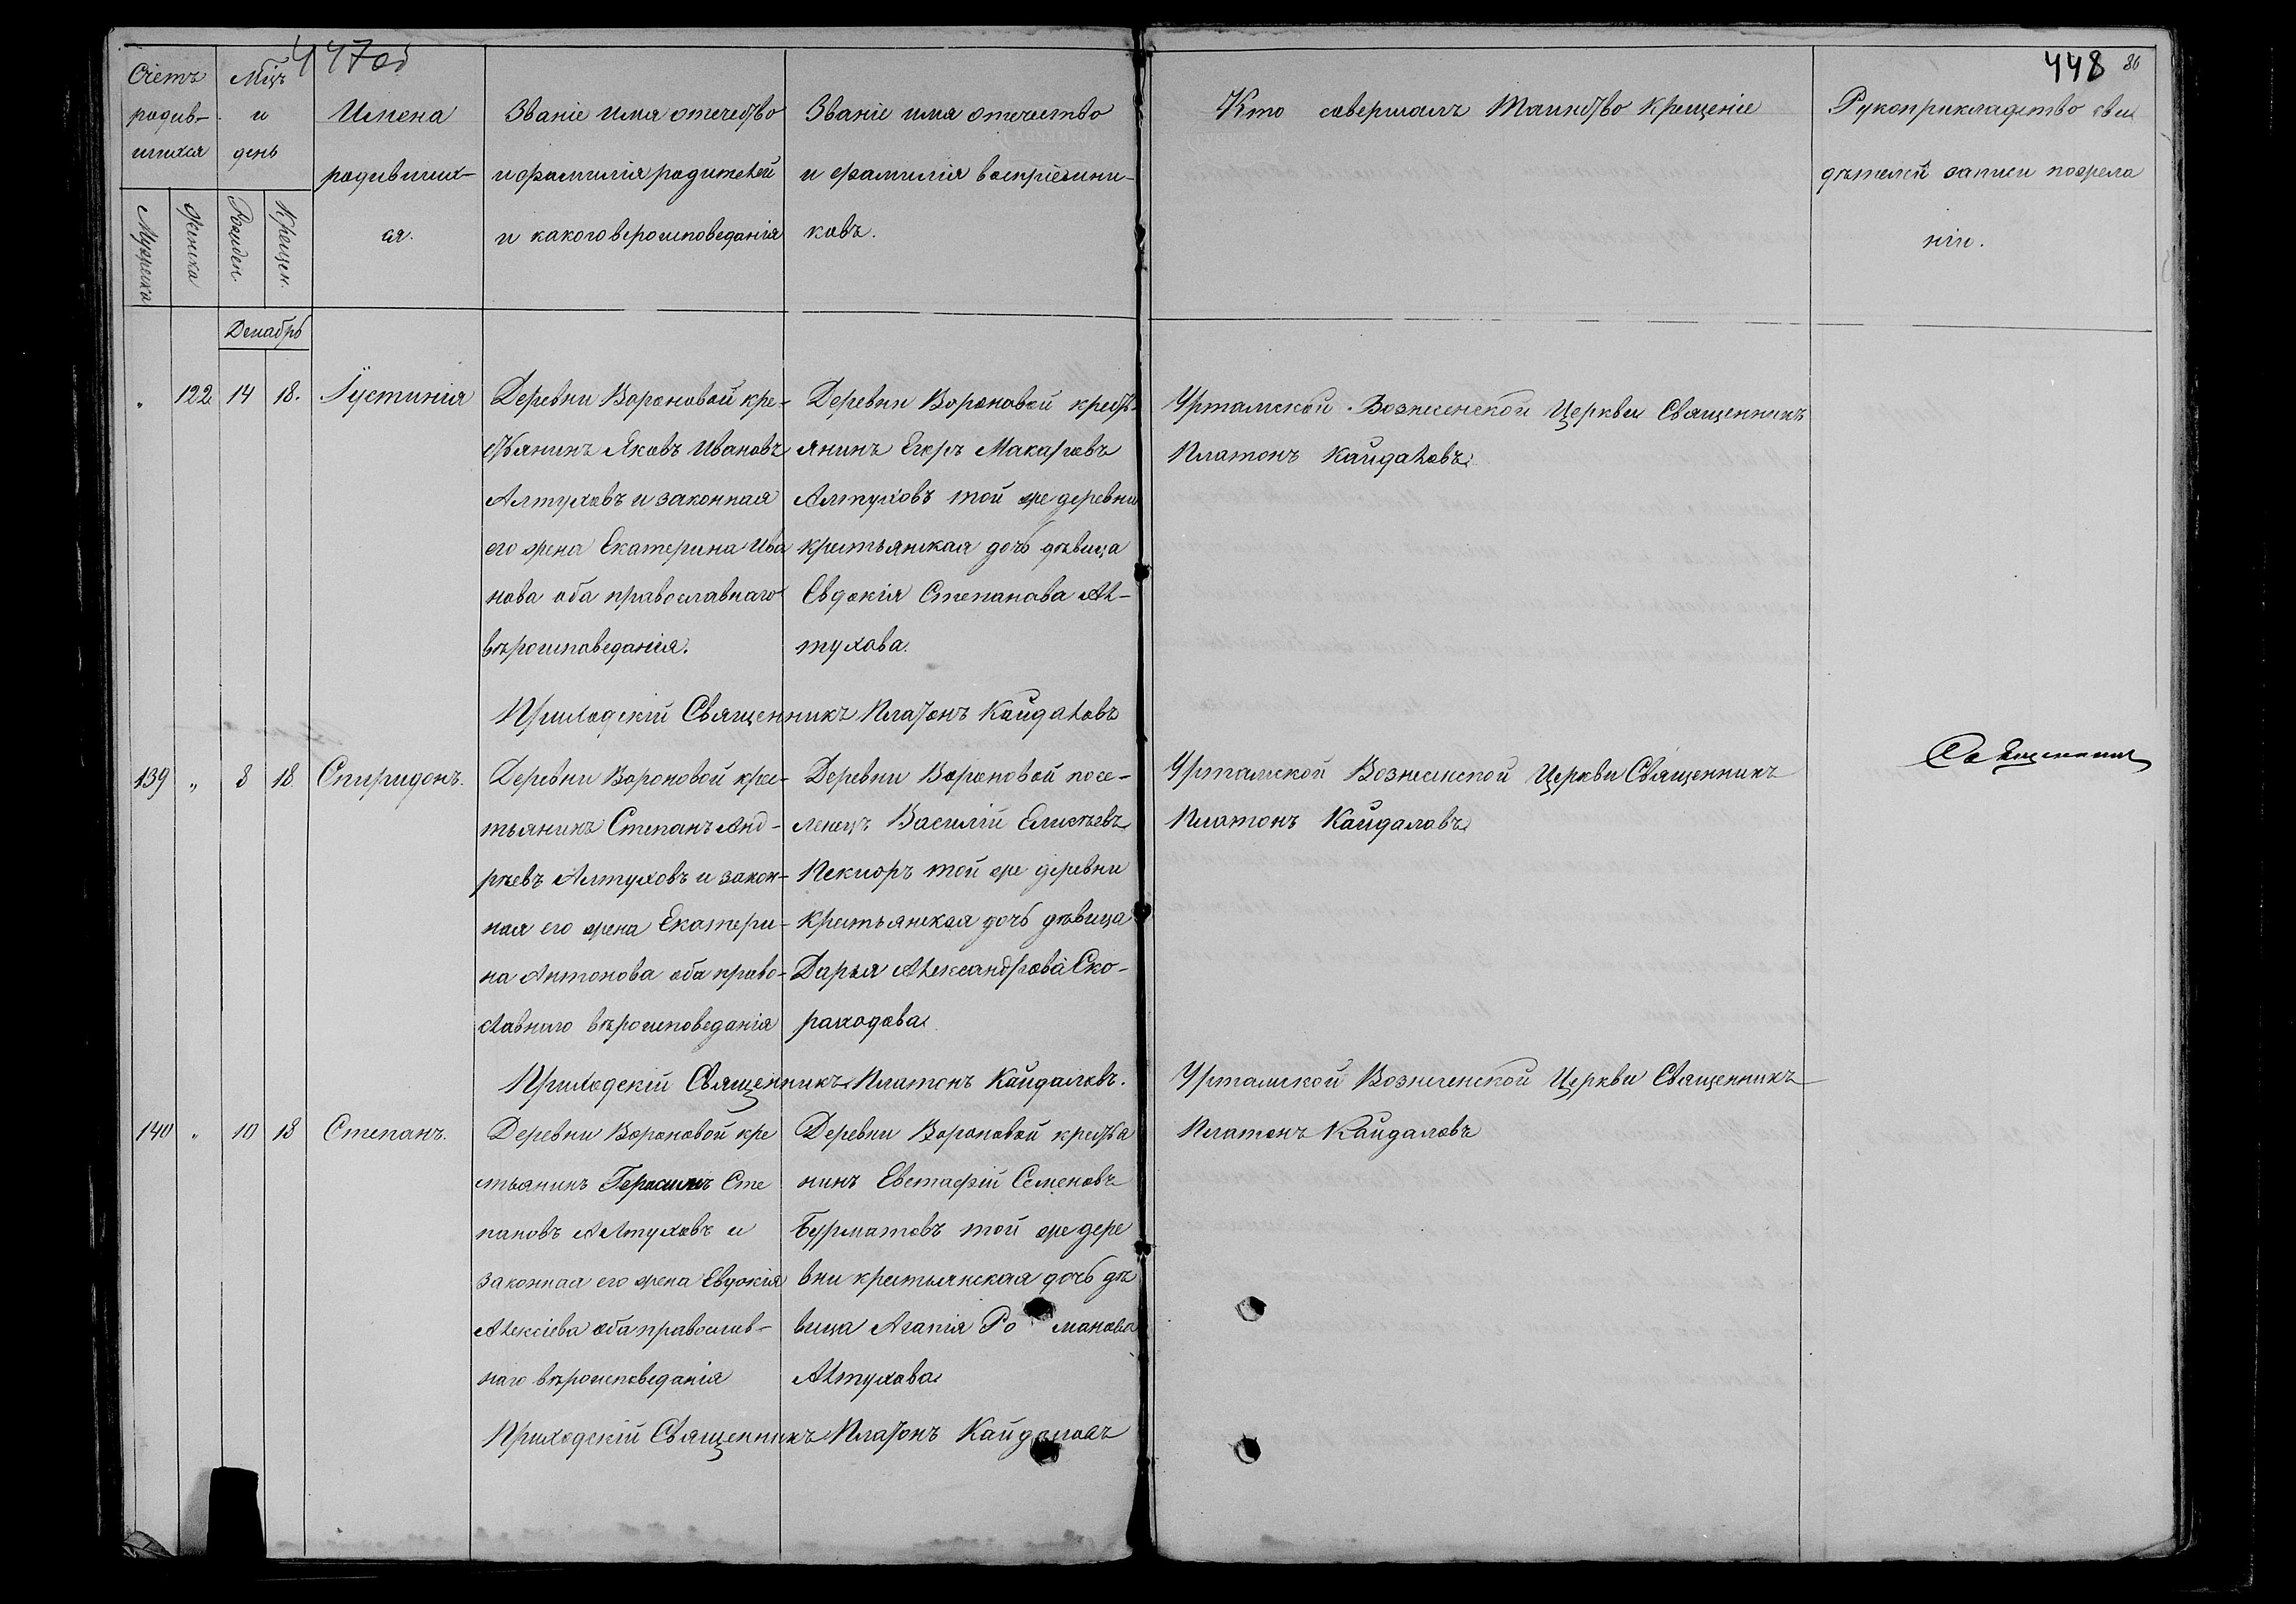 447об
448 86
Счетъ родив-шихся
Мцъ и день
Имена родивших-ся.
Званіе имя отечество и фамилія родителей и какого вероисповеданія
Званіе имя отечество и фамилія воспріемни-ковъ.
Кто совершалъ Таинство Крещеніе
Рукоприкладство сви
дѣтелей записи пожела
нію.
Мужеска
Женска
Рожден.
Крещен.
Декабрь
" 122 14 18. Іустинія
Деревни Вороновой кре-
стьянинъ Яковъ Ивановъ
Алтуховъ и законная
его жена Екатерина Ива
нова оба православнаго
вѣроисповеданія.
Деревни Вороновой крест-
янинъ Егоръ Макаровъ
Алтуховъ той же деревни
крестьянская дочь дѣвица
Евдокія Степанова Ал-
тухова.
Уртамской Вознесенской Церкви Священникъ
Платонъ Кайдаловъ
Приходскій Священникъ Платонъ Кайдаловъ
139 " 8 18. Спиридонъ.
Деревни Вороновой крес-
тьянинъ Степанъ Анд-
рѣевъ Алтуховъ и закон-
ная его жена Екатери-
на Антонова оба право-
славнаго вѣроисповеданія
Деревни Вороновой посе-
ленецъ Василій Елисѣевъ
Пекиоръ той же деревни
крестьянская дочь дѣвица
Дарья Александрова Ско-
раходова
Уртамской Вознесенской Церкви Священникъ
Платонъ Кайдаловъ
Приходскій Священникъ Платонъ Кайдаловъ.
140 " 10 18 Степанъ.
Деревни Вороновой кре
стьянинъ Герасимъ Сте
пановъ Алтуховъ и
законная его жена Евдокія
Алексіева оба православ-
наго вѣроисповеданія
Деревни Вороновой крестья
нинъ Евстафій Семеновъ
Бурматовъ той же дере
вни крестьянская дочь дѣ
вица Агапія Романова
Алтухова
Уртамской Вознесенской Церкви Священникъ
Платонъ Кайдаловъ
Приходскій Священникъ Платонъ Кайдаловъ